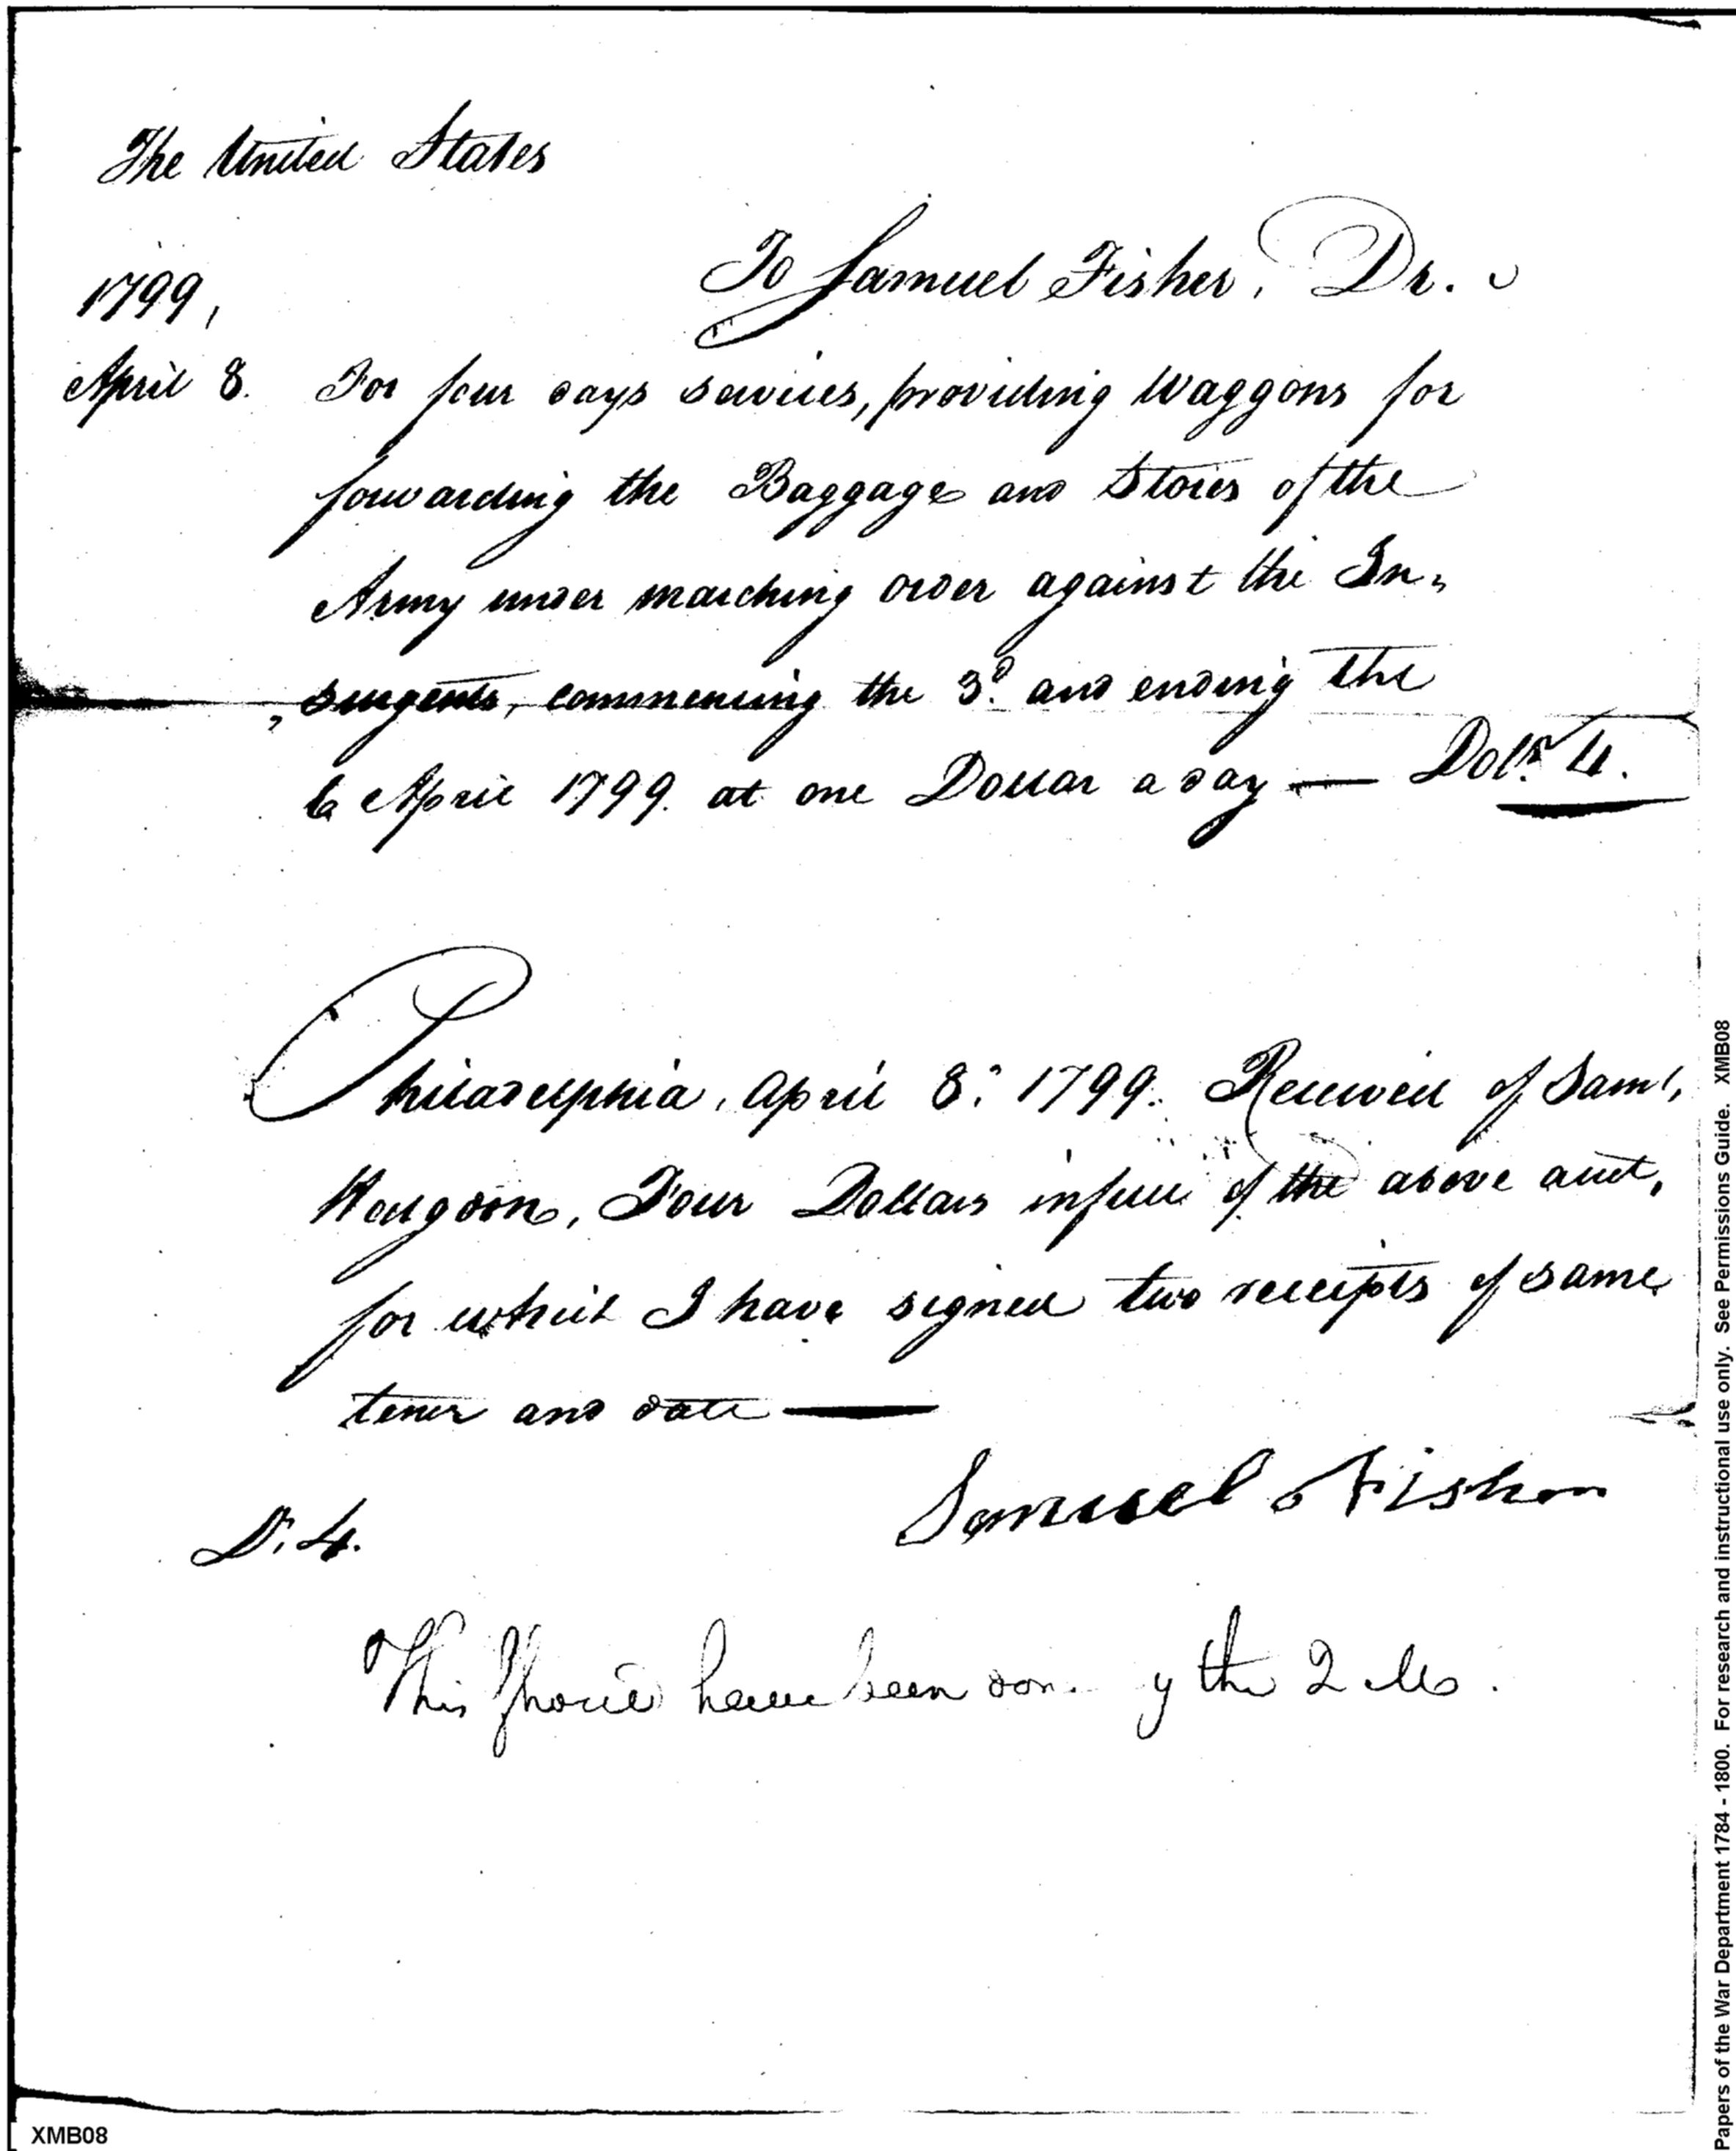 The United States
To Samuel Fisher, Dr.
1799,
April 8. For four days services, providing Waggons for
forwarding the Baggage and Stores of the
Army under marching order against the In„
„surgents, commencing the 3d. and ending the
6 April 1799. at one Dollar a day — Dolrs. 4.
Philadelphia, April 8: 1799. Received of Saml.
Four Dollars in full of the above acct,
for which I have signed two receipts of same
tenor and date —
Samuel Fisher
D. 4.
This have been don. y the 2 M
XMB08
Papers of the War Department 1784 - 1800. For research and instructional use only. See Permissions Guide. XMB08